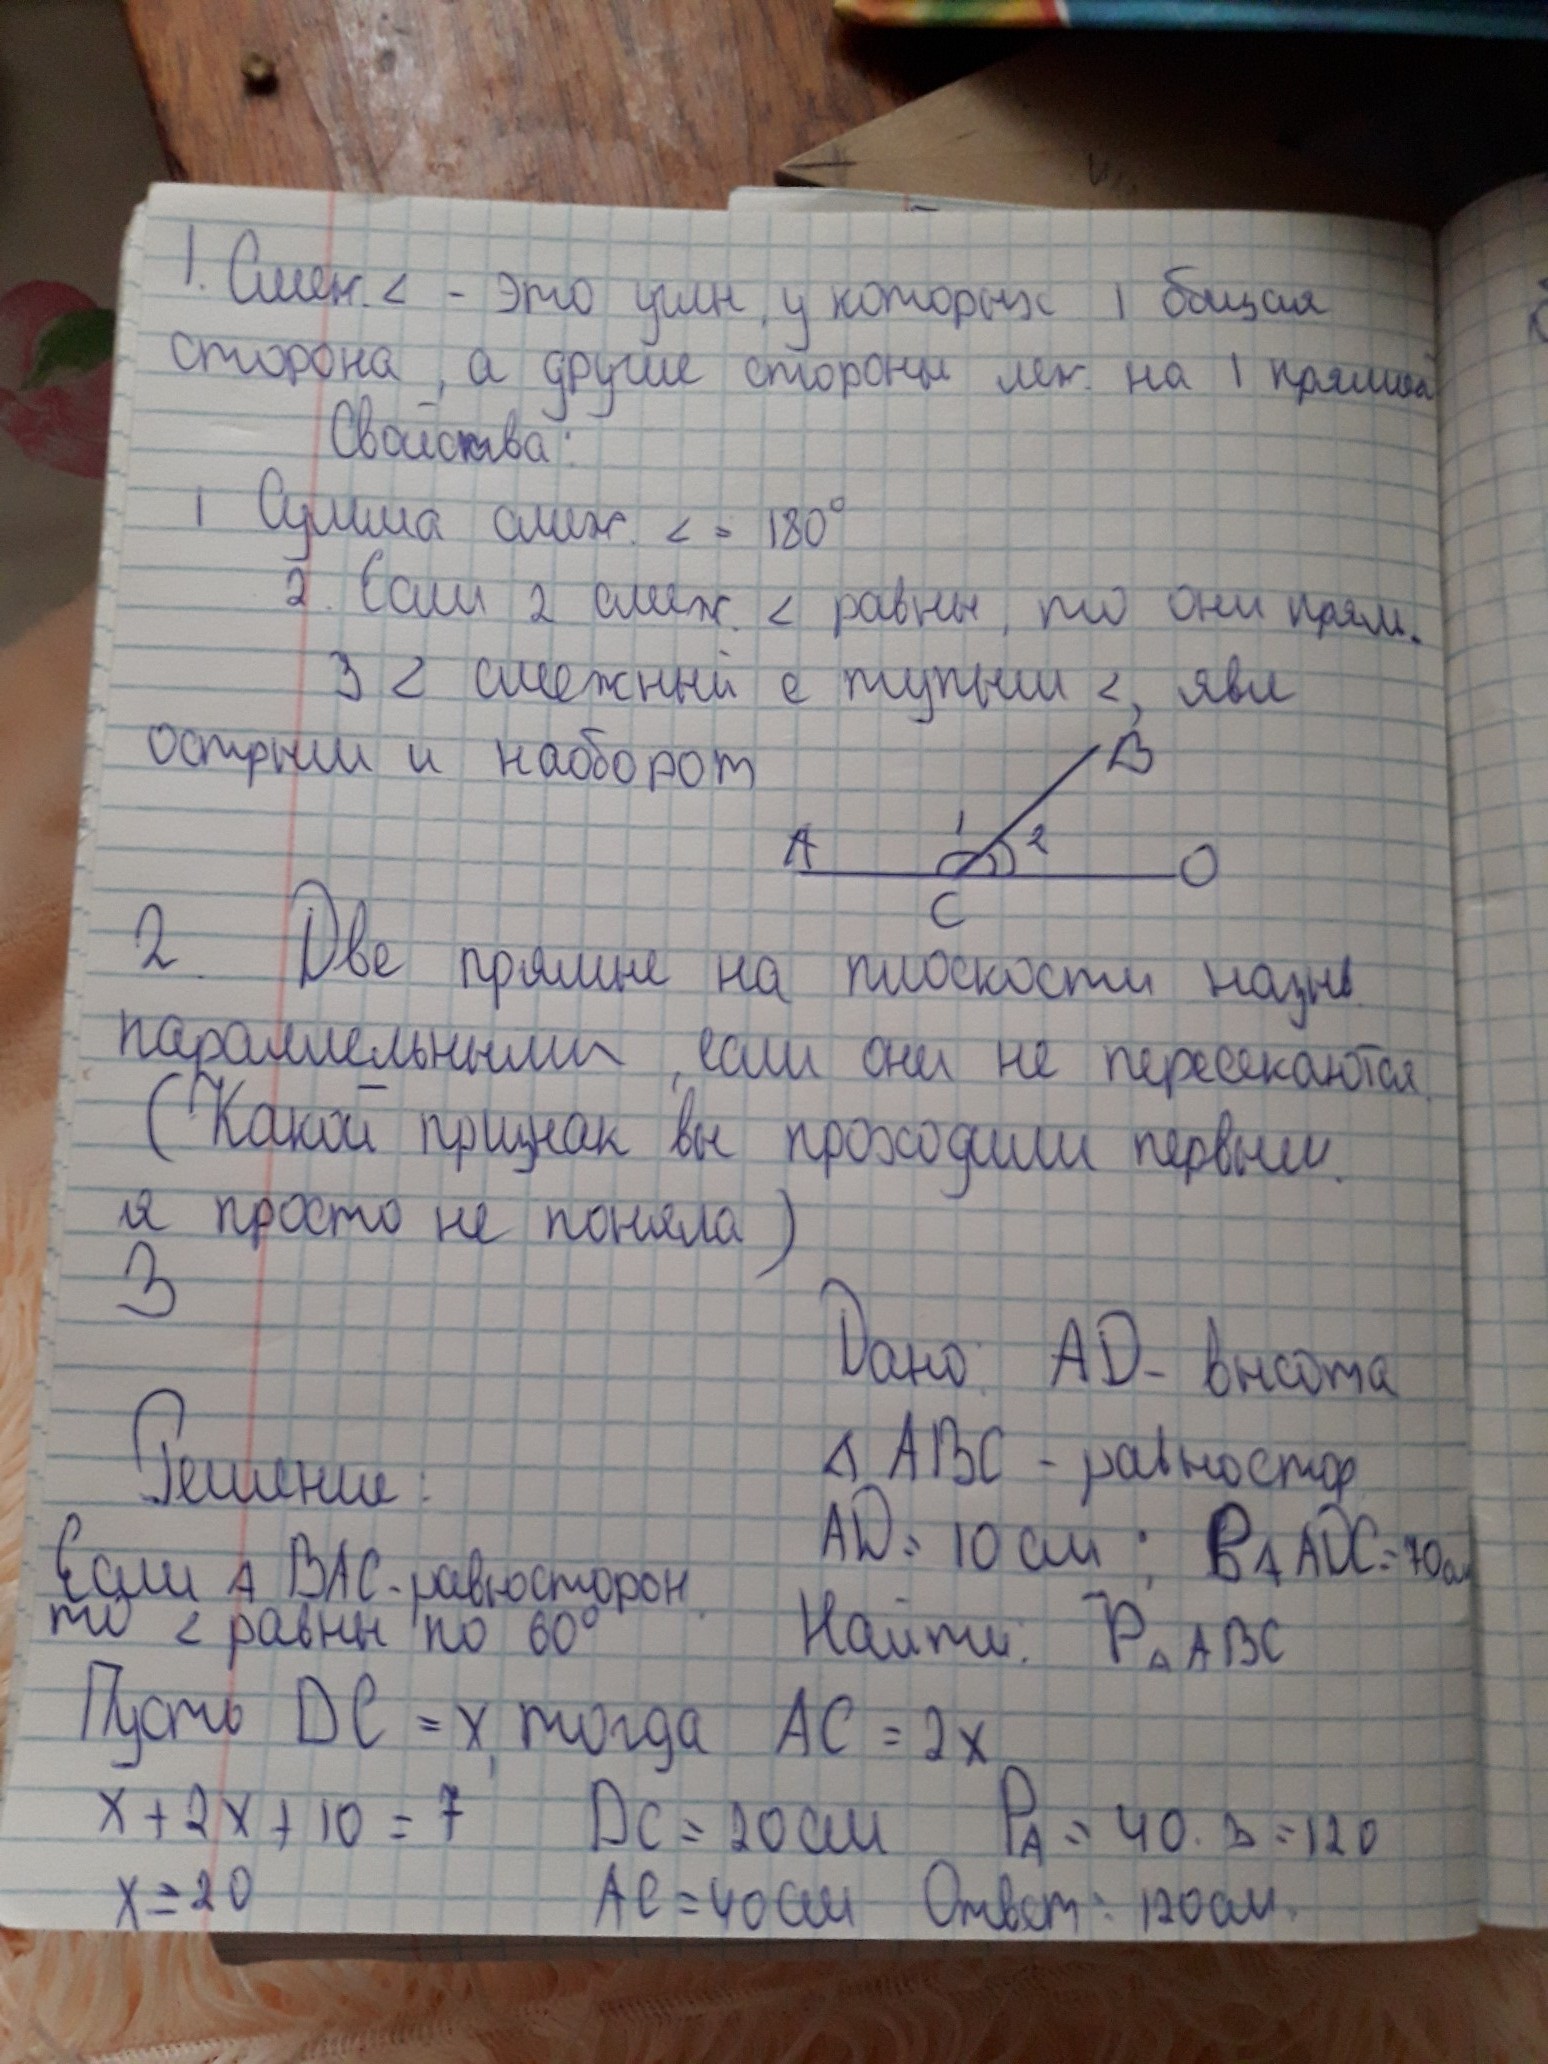 1. Смеж. < - это углы, у которых 1 общая
сторона, а другие стороны леж. на 1 прямой
Свойства:
1 Сумма смеж. < = 180°
2. Если 2 смеж. < равны, то они прям.
3 < смежный с тупым <, явл
острым и наоборот
B
A 1 2 O
C
2. Две прямые на плоскости назыв.
параллельными, если они не пересекаются.
(Какой признак вы проходили первым.
я просто не поняла)
3
Дано: AD - высота
△ ABC - равностор.
Решение:
AD = 10 см ; P△ ADC = 70см
Если △ BAC - равносторон.
то < равны по 60°
Найти: P△ ABC
Пусть DC = x, тогда AC = 2x
x + 2x + 10 = 7 DC = 20 см P△ = 40 · 3 = 120
x = 20 AC = 40 см Ответ: 120 см.